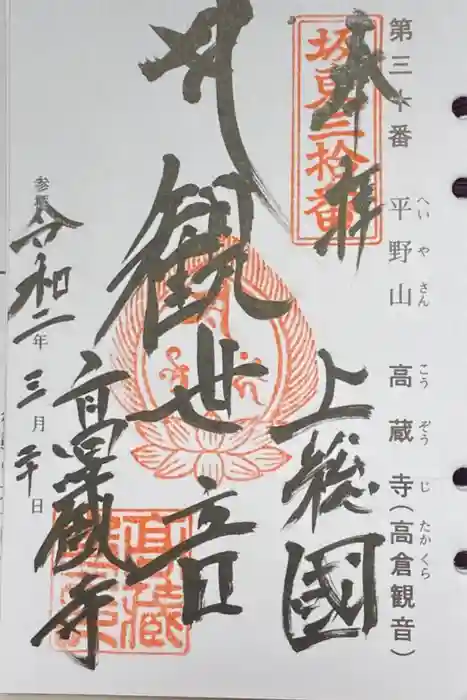 第三十番 平野山 高蔵寺(高倉観音)
へいやさん こうぞうじ たかくら
奉拝
坂東三拾番
上総國
観世音
高蔵寺
高蔵
参拝
令和二年三月二十日